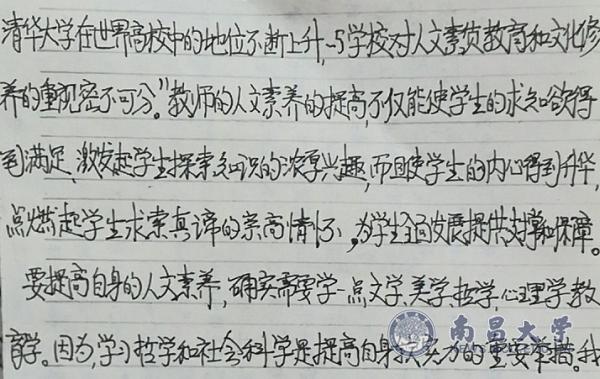 清华大学在世界高校中的地位不断上升,与学校对人文素质教育和文化修
养的重视密不可分。"教师的人文素养的提高,不仅能使学生的求知欲得
到满足,激发起学生探索知识的浓厚兴趣,而且使学生的内心得到升华,
点燃起学生求索真谛的崇高情怀,为学生全面发展提供支撑和保障。
要提高自身的人文素养,确实需要学一点文学、美学、哲学、心理学、教
育学。因为,学习哲学和社会科学是提高自身 实力的重要举措。我
南昌大学